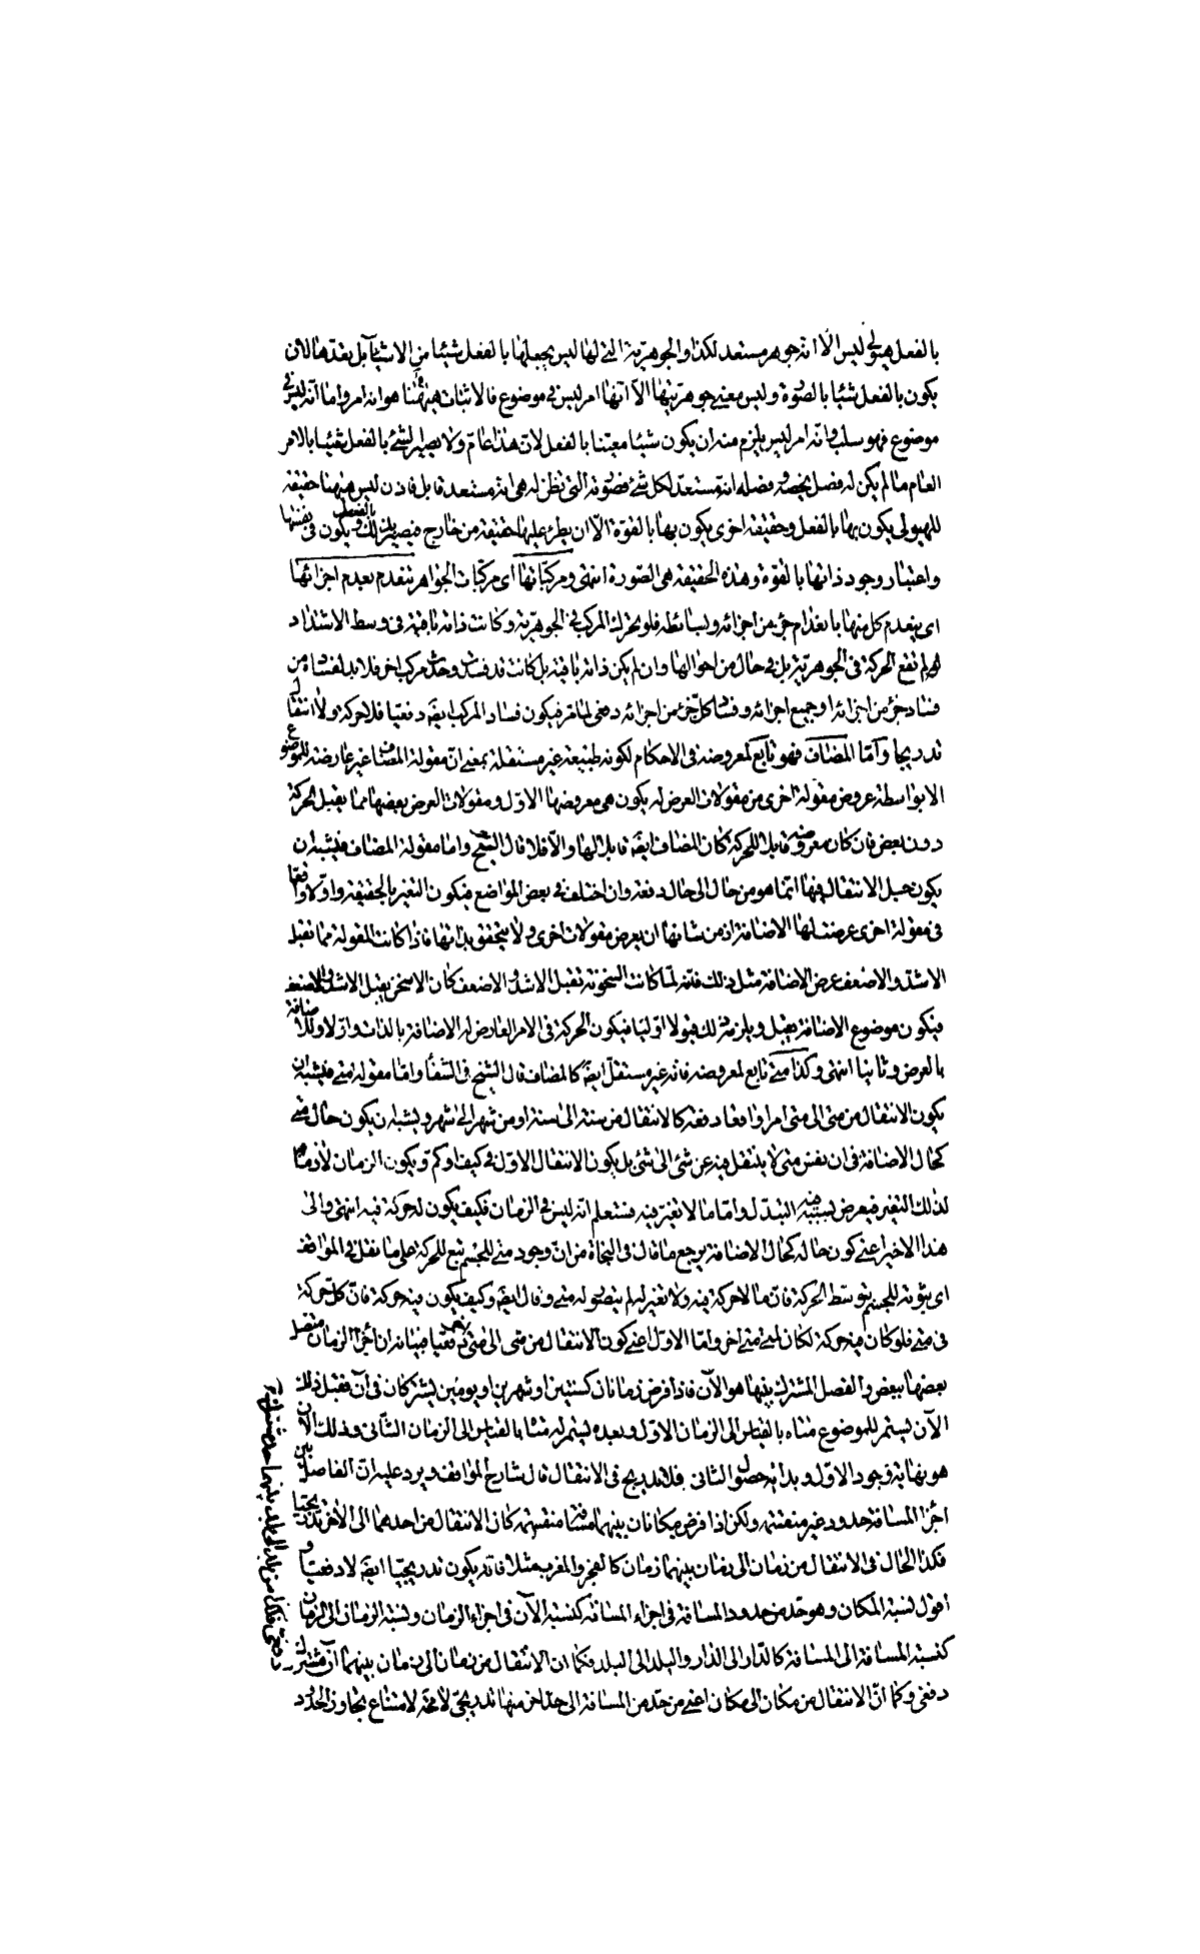 بالفعل هيولى ليس الا انه جوهر مستعد لكذا والجوهرية التى لها ليس يجعلها بالفعل شيئا من الاشياء بل يعدها لان
يكون بالفعل شيئا بالصورة وليس معنى جوهريتها الا انها امر ليس فى موضوع فالاثبات ههنا هو انه امر واما انه ليس فى
موضوع فهو سلب وانه امر ليس يلزم منه ان يكون شيئا معينا بالفعل لان هذا عام ولا يصير الشئ بالفعل شيئا بالامر
العام ما لم يكن له فصل يخصه وفصله انه مستعد لكل شئ فصورته التى تظن له هى انه مستعد قابل فاذن ليس ههنا حقيقة
للهيولى يكون بها بالفعل وحقيقة اخرى يكون بها بالقوة الا ان يطرء عليها حقيقة من خارج فيصير بذلك بالفعل ويكون فى نفسها
واعتبار وجود ذاتها بالقوة وهذه الحقيقة هى الصورة انتهى ومركباتها اى مركبات الجواهر تنعدم بعدم اجزائها
اى ينعدم كل منها بانعدام جزء من اجزائه وبسائطه فلو تحرك المركب فى الجوهرية وكانت ذاته باقية فى وسط الاشتداد
لم تقع الحركة فى الجوهرية بل فى حال من احوالها وان لم يكن ذاته باقية بل كانت قد فسدت وحدث مركب اخر فلا بد لفساده من
فساد جزء من اجزائه او جميع اجزائه وفساد كل جزء من اجزائه دفعى لما مر فيكون فساد المركب ايضا دفعيا فلا حركة ولا انتقال
تدريجا واما المضاف فهو تابع لمعروضه فى الاحكام لكونه طبيعة غير مستقلة بمعنى ان مقولة المضاف غير عارضة للموضوع
الا بواسطة عروض مقولة اخرى من مقولات العرض له يكون هى معروضها الاول ومقولات العرض بعضها مما يقبل الحركة
دون بعض فان كان معروضه قابلا للحركة كان المضاف ايضا قابلا لها والا فلا قال الشيخ واما مقولة المضاف فيشبه ان
يكون جل الانتقال فيها انما هو من حال الى حال دفعة وان اختلف فى بعض المواضع فيكون التغير بالحقيقة واولا واقعا
فى مقولة اخرى عرضت لها الاضافة اذ من شانها ان يعرض مقولات اخرى ولا يتحقق بذاتها فاذا كانت المقولة مما تقبل
الاشد والاضعف عرض الاضافة مثل ذلك فانه لما كانت السخونة تقبل الاشد والاضعف كان الاسخن يقبل الاشد والاضعف
فيكون موضوع الاضافة يقبل ويلزمه ذلك قبولا اوليا فيكون الحركة فى الامر العارض له الاضافة بالذات واولا وللاضافة
بالعرض وثانيا انتهى وكذا متى تابع لمعروضه فانه غير مستقل ايضا كالمضاف قال الشيخ فى الشفاء واما مقولة متى فيشبه ان
يكون الانتقال من متى الى متى امرا واقعا دفعة كالانتقال من سنة الى سنة او من شهر الى شهر ويشبه ان يكون حال متى
كحال الاضافة فى ان نفس متى لا ينتقل فيه عن شئ الى شئ بل يكون الانتقال الاول فى كيف او كم ويكون الزمان لازما
لذلك التغير فيعرض بسببه فيه التبدل واما ما لا تغير فيه فستعلم انه ليس فى الزمان فكيف يكون له حركة فيه انتهى والى
هذا الاخير اعنى كون حاله كحال الاضافة يرجع ما قال فى النجاة من ان وجود متى للجسم بتبع للحركة على ما نقل فى المواقف
اى ثبوته للجسم بتوسط الحركة فان ما لا حركة فيه ولا تغير له لم يتصور له متى وقال ايضا وكيف يكون فيه حركة فان كل حركة
فى متى فلو كان فيه حركة لكان لمتى متى اخر واما الاول اعنى كون الانتقال من متى الى متى دفعيا فبيانه ان اجزاء الزمان متصل
بعضها ببعض والفصل المشترك بينها هو الآن فاذا فرض زمانان كسنتين او شهرين او يومين يشتركان فى آن فقبل ذلك
الآن يستمر للموضوع متاه بالقياس الى الزمان الاول وبعده يستمر له متاه بالقياس الى الزمان الثانى وذلك الآن
هو نهاية وجود الاول وبداية حصول الثانى فلا تدريج فى الانتقال قال شارح المواقف ويرد عليه ان الفاصل بين
اجزاء المسافة حدود غير منقسمة ولكن اذا فرض مكانان بينهما مسافة منقسمة كان الانتقال من احدهما الى الاخر تدريجيا
فكذا الحال فى الانتقال من زمان الى زمان بينهما زمان كالفجر والمغرب مثلا فانه يكون تدريجيا ايضا لا دفعيا و
اقول نسبة المكان وهو حد من حدود المسافة فى اجزاء المسافة كنسبة الآن فى اجزاء الزمان ونسبة الزمان الى الزمان
كنسبة المسافة الى المسافة كالدار الى الدار والبلد الى البلد فكما ان الانتقال من زمان الى زمان بينهما آن مشترك
دفعى وكما ان الانتقال من مكان الى مكان اعنى من حد من المسافة الى حد اخر منها تدريجى لا محة لامتناع تجاوز الحدود
دفعى فكذا من بلد الى بلد بينهما حد مشترك